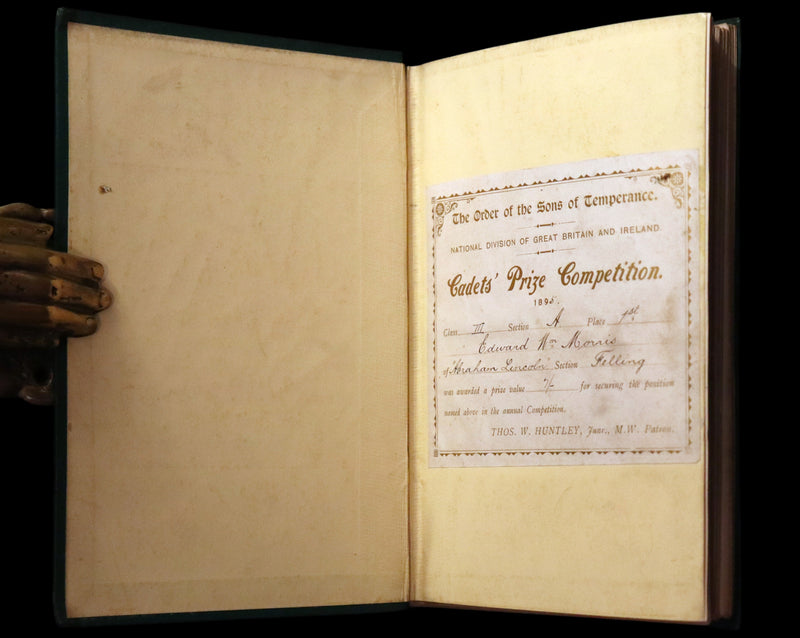 The Order of the Sons of Temperance.
NATIONAL DIVISION OF GREAT BRITAIN AND IRELAND.
Cadets' Prize Competition.
1895.
Class III Section A Place 1st
Edward Wm Morris
of "Abraham Lincoln" Section Felling
was awarded a prize value 7/- for securing the position
named above in the annual Competition.
THOS. W. HUNTLEY, Junr., M.W. Patron.